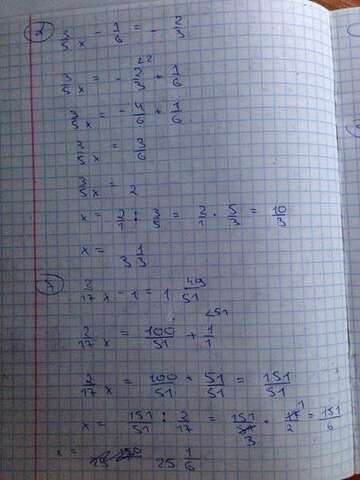 ② 3/5 x - 1/6 = - 2/3
3/5 x = - 2/3 + 1/6
3/5 x = - 4/6 + 1/6
3/5 x = 3/6
3/5 x = 2
x = 2/1 : 3/5 = 2/1 · 5/3 = 10/3
x = 3 1/3
2/17 x - 1 = 1 49/51
2/17 x = 100/51 + 1/1
2/17 x = 100/51 + 51/51 = 151/51
x = 151/51 : 2/17 = 151/51 3 · 17 1/2 = 151/6
x = 25 1/6